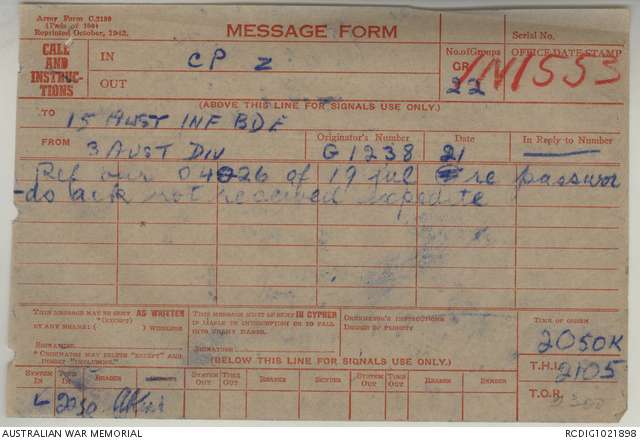 Army Form C.2130
(Pads of 100)
Reprinted October, 1942.
MESSAGE FORM
Serial No.
CALL
AND
INSTRUC-
TIONS
IN
CP Z
OUT
No. of Groups
GR.
22
OFFICE DATE STAMP
IN1553
(ABOVE THIS LINE FOR SIGNALS USE ONLY.)
TO
15 AUST INF BDE
FROM
3 AUST DIV
Originator's Number
G1238
Date
21
In Reply to Number
Ref our 04026 of 19 Jul re passwor
-do ack not received expedite
THIS MESSAGE MAY BE SENT AS WRITTEN
*(EXCEPT)
BY ANY MEANS: ( ) WIRELESS
SIGNATURE
* ORIGINATOR MAY DELETE "EXCEPT" AND
INSERT "INCLUDING."
THIS MESSAGE MUST BE SENT IN CYPHER
IF LIABLE TO INTERCEPTION OR TO FALL
INTO ENEMY HANDS.
SIGNATURE
ORIGINATOR'S INSTRUCTIONS
DEGREE OF PRIORITY
TIME OF ORIGIN
2050K
T.H.I.
2105
T.O.R.
(BELOW THIS LINE FOR SIGNALS USE ONLY.)
SYSTEM IN
TIME IN
READER
SENDER
SYSTEM OUT
TIME OUT
READER
SENDER
SYSTEM OUT
TIME OUT
READER
SENDER
L
AUSTRALIAN WAR MEMORIAL
RCDIG1021898